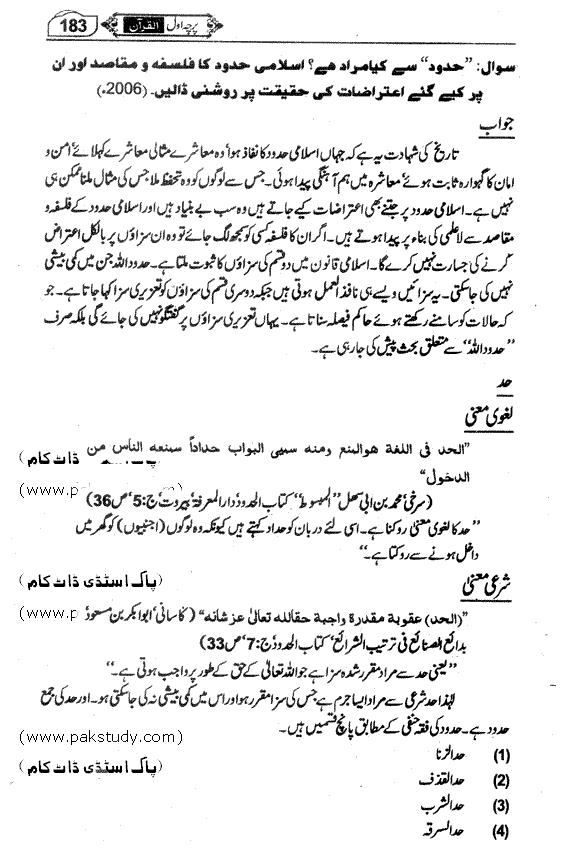 183 القرآن پرچہ اول
سوال: "حدود" سے کیا مراد ھے؟ اسلامی حدود کا فلسفہ و مقاصد اور ان
پر کیے گئے اعتراضات کی حقیقت پر روشنی ڈالیں۔ (2006ء)
جواب
تاریخ کی شہادت یہ ہے کہ جہاں اسلامی حدود کا نفاذ ہوا' وہ معاشرے مثالی معاشرے کہلائے' امن و
امان کا گہوارہ ثابت ہوئے' معاشرہ میں ہم آہنگی پیدا ہوئی۔ جس سے لوگوں کو وہ تحفظ ملا جس کی مثال ملنا ممکن ہی
نہیں ہے۔ اسلامی حدود پر جتنے بھی اعتراضات کیے جاتے ہیں وہ سب بے بنیاد ہیں اور اسلامی حدود کے فلسفہ و
مقاصد سے لاعلمی کی بناء پر پیدا ہوتے ہیں۔ اگر ان کا فلسفہ کسی کو سمجھ لگ جائے تو وہ ان سزاؤں پر بالکل اعتراض
کرنے کی جسارت نہیں کرے گا۔ اسلامی قانون میں دو قسم کی سزاؤں کا ثبوت ملتا ہے۔ حدود اللہ جن میں کمی بیشی
نہیں کی جاسکتی۔ یہ سزائیں ویسے ہی نافذ العمل ہوتی ہیں جبکہ دوسری قسم کی سزاؤں کو تعزیری سزا کہا جاتا ہے۔ جو
کہ حالات کو سامنے رکھتے ہوئے حاکم فیصلہ سناتا ہے۔ یہاں تعزیری سزاؤں پر گفتگو نہیں کی جائے گی بلکہ صرف
"حدود اللہ" سے متعلق بحث پیش کی جارہی ہے۔
حد
لغوی معنی
"الحد فی اللغة هوالمنع ومنه سمیی البواب حداداً سبنعه الناس من
ڈاٹ کام)
الدخول"
(www.pa
(سرخی' محمد بن ابی سھل' "المبسوط" کتاب الحدود' دارالمعرفۃ' بیروت' ج:5' ص36)
"حد کا لغوی معنیٰ روکنا ہے۔ اسی لئے دربان کو حداد کہتے ہیں کیونکہ وہ لوگوں (اجنبیوں) کو گھر میں
داخل ہونے سے روکتا ہے۔"
شرعی معنیٰ
(پاک اسٹڈی ڈاٹ کام)
"(الحد) عقوبة مقدرة واجبة حقالله تعالیٰ عزشانه" (کاسانی' ابوابکر بن مسعود'
(www.p
بدائع الصنائع فی ترتیب الشرائع' کتاب الحدود' ج:7' ص33)
"یعنی حد سے مراد مقرر شدہ سزا ہے جو اللہ تعالیٰ کے حق کے طور پر واجب ہوتی ہے۔"
لہٰذا حد شرعی سے مراد ایسا جرم ہے جس کی سزا مقرر ہو اور اس میں کمی بیشی نہ کی جاسکتی ہو۔ اور حد کی جمع
حدود ہے۔ حدود کی فقہ حنفی کے مطابق پانچ قسمیں ہیں۔
(www.pakstudy.com)
(1) حدالزنا
(پاک اسٹڈی ڈاٹ کام)
(2) حدالقذف
(3) حدالشرب
(4) حدالسرقہ